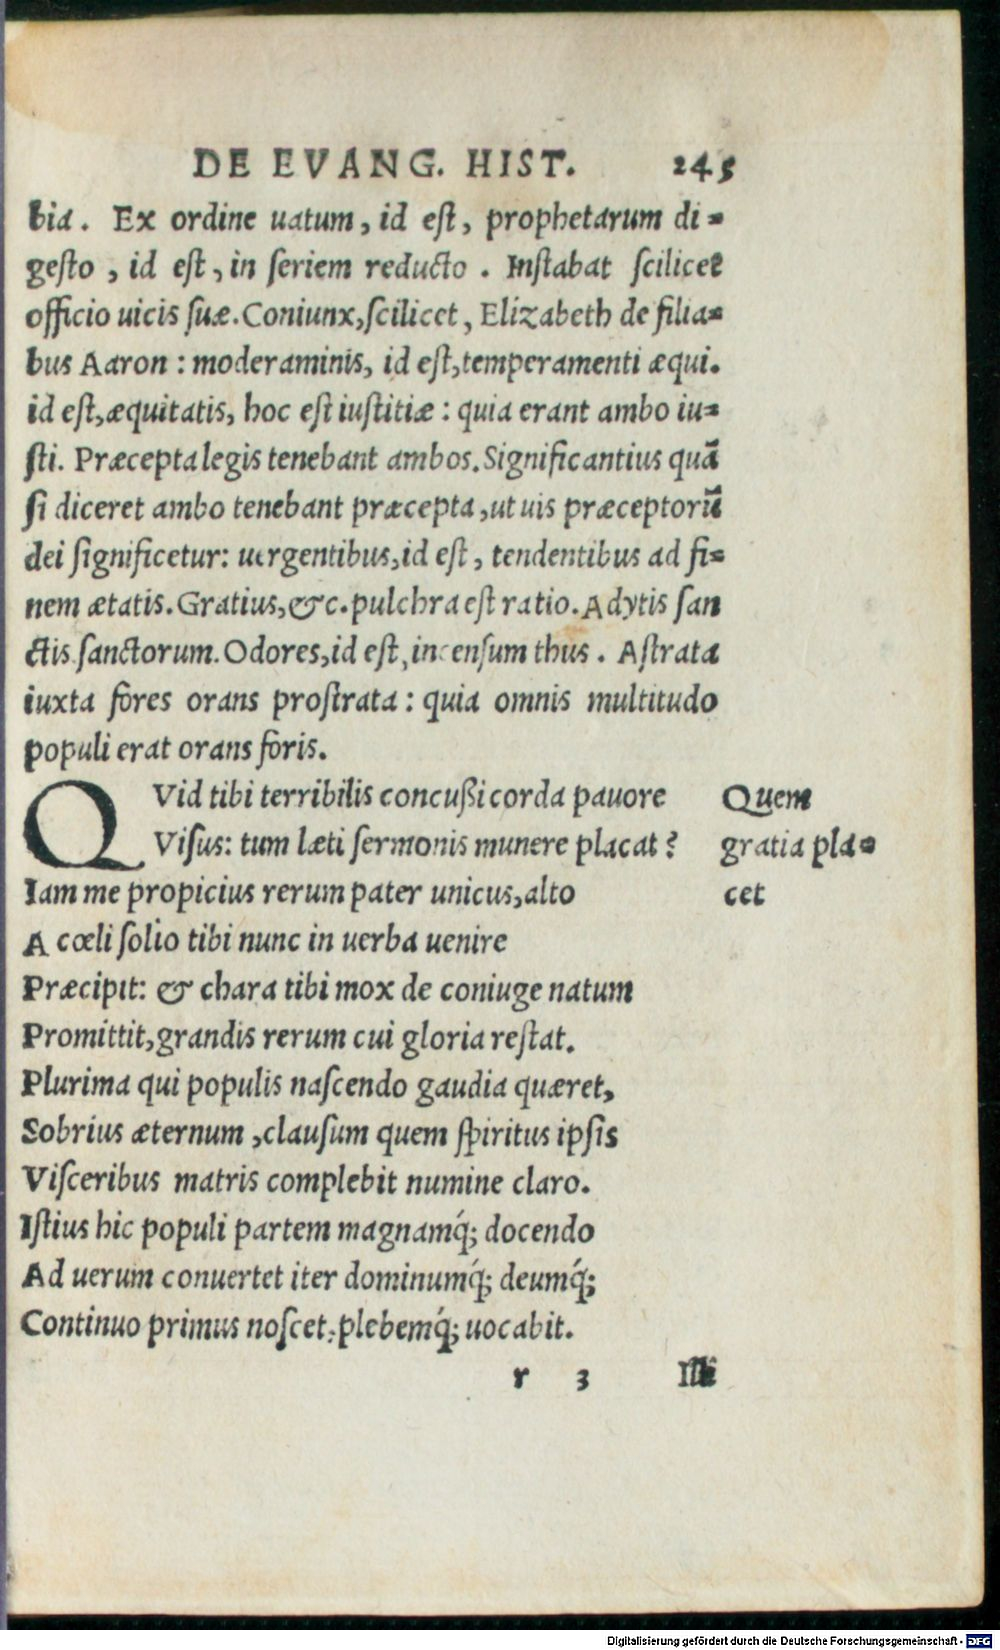 DE EVANG. HIST. 245
bia. Ex ordine uatum, id est, prophetarum di=
gesto, id est, in seriem reducto. Instabat scilicet
officio uicis suæ. Coniunx, scilicet, Elizabeth de filia=
bus Aaron: moderaminis, id est, temperamenti æqui.
id est, æquitatis, hoc est iustitiæ: quia erant ambo iu=
sti. Præcepta legis tenebant ambos. Significantius quã
si diceret ambo tenebant præcepta, ut uis præceptorũ
dei significetur: uergentibus, id est, tendentibus ad fi=
nem ætatis. Gratius, &c. pulchra est ratio. Adytis san
ctis sanctorum. Odores, id est, incensum thus. Astrata
iuxta fores orans prostrata: quia omnis multitudo
populi erat orans foris.
QVid tibi terribilis concußi corda pauore
Visus: tum læti sermonis munere placat?
Quem
gratia pla=
cet
Iam me propicius rerum pater unicus, alto
A cœli solio tibi nunc in uerba uenire
Præcipit: & chara tibi mox de coniuge natum
Promittit, grandis rerum cui gloria restat.
Plurima qui populis nascendo gaudia quæret,
Sobrius æternum, clausum quem spiritus ipsis
Visceribus matris complebit numine claro.
Istius hic populi partem magnamq́; docendo
Ad uerum conuertet iter dominumq́; deumq́;
Continuo primus noscet, plebemq́; uocabit.
r 3 Illi
Digitalisierung gefördert durch die Deutsche Forschungsgemeinschaft - DFG